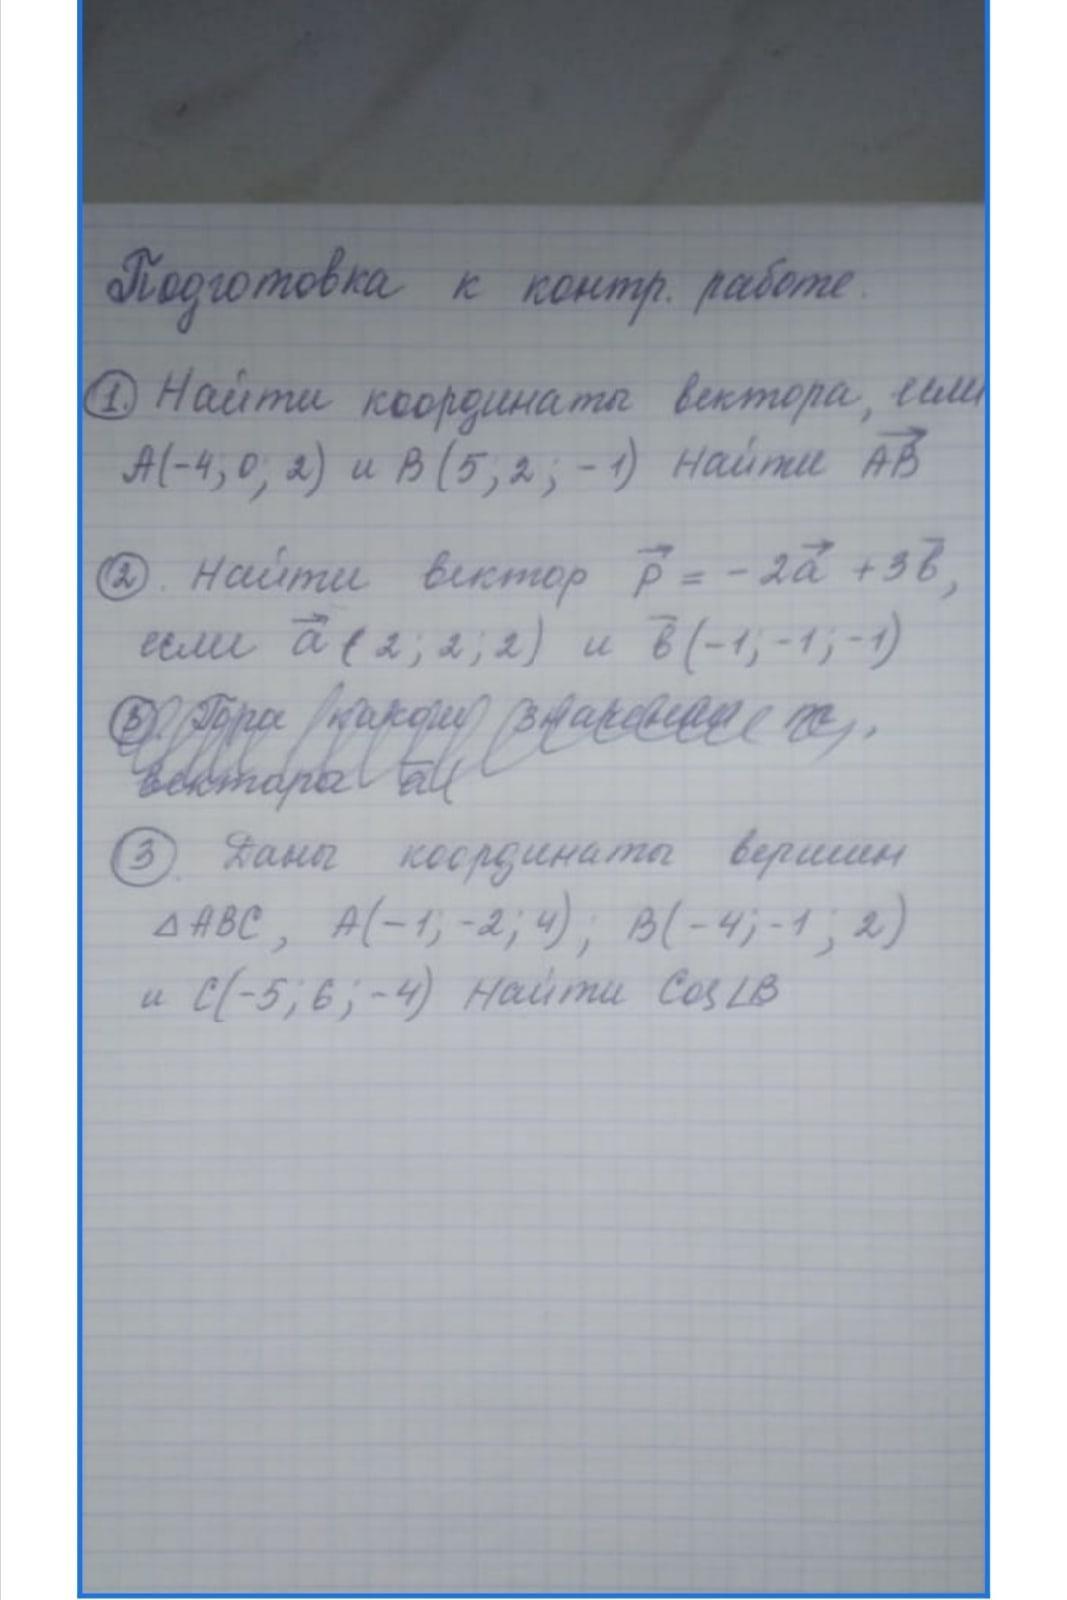 Подготовка к контр. работе.
1. Найти координаты вектора, если
A(-4; 0; 2) и B(5; 2; -1) найти AB
2. Найти вектор p = -2a + 3b,
если a(2; 2; 2) и b(-1; -1; -1)
3. значении x,
вектора a(
3. Даны координаты вершин
△ABC, A(-1; -2; 4); B(-4; -1; 2)
и C(-5; 6; -4) найти Cos∠B